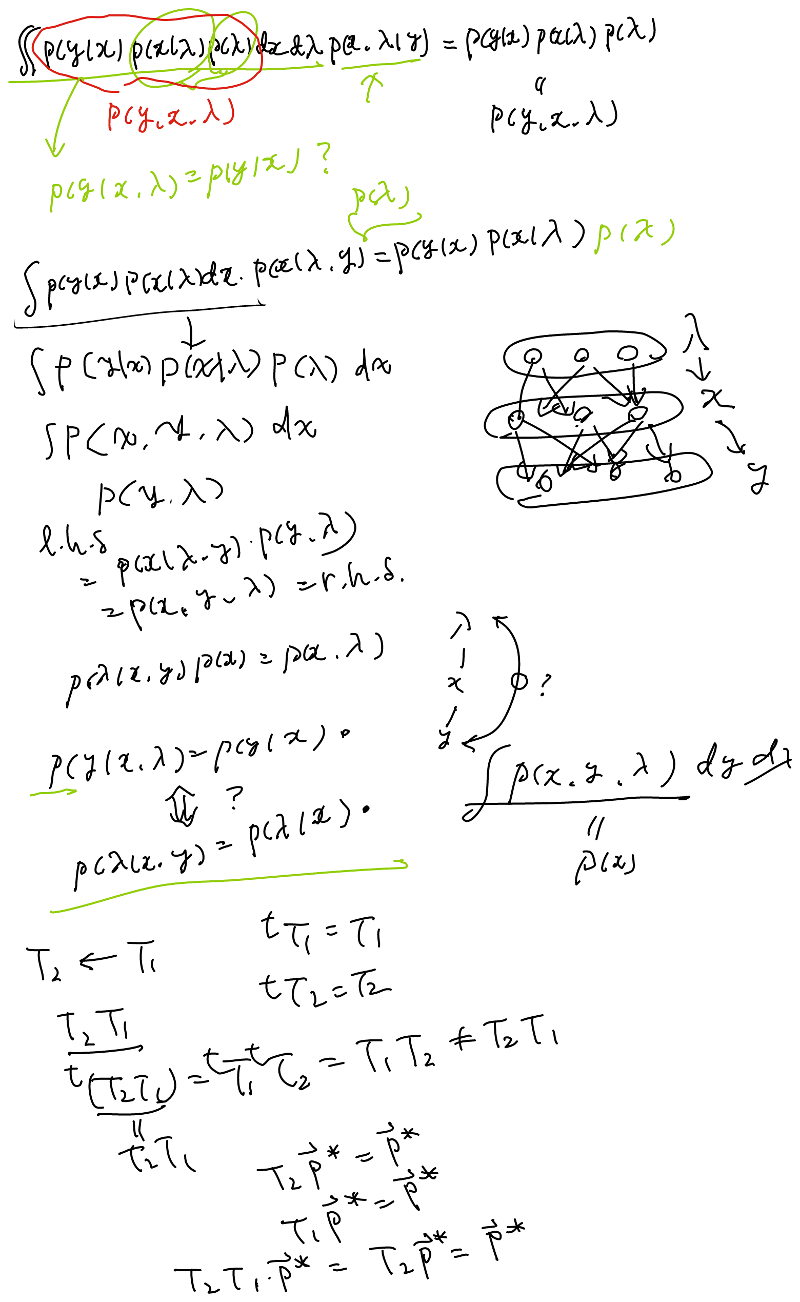 ∬ p(y|x) p(x|λ) p(λ) dx dλ p(x, λ|y) = p(y|x) p(x|λ) p(λ)
p(y, x, λ)
p(y, x, λ)
p(y|x, λ) = p(y|x) ?
p(λ)
∫ p(y|x) p(x|λ) dx · p(x|λ, y) = p(y|x) p(x|λ) p(λ)
∫ p(y|x) p(x|λ) p(λ) dx
λ
∫ p(x, y, λ) dx
x
p(y, λ)
y
l.h.s
= p(x|λ, y) · p(y, λ)
= p(x, y, λ) = r.h.s.
λ
p(λ|x, y) p(x) = p(x, λ)
x
?
y
p(y|x, λ) = p(y|x) .
∫ p(x, y, λ) dy dλ
⇕ ?
p(λ|x, y) = p(λ|x) .
=
p(x)
T₂ ← T₁
ᵗT₁ = T₁
ᵗT₂ = T₂
T₂ T₁
ᵗ(T₂T₁) = ᵗT₁ ᵗT₂ = T₁ T₂ ≠ T₂ T₁
=
T₂T₁
T₂ p⃗* = p⃗*
T₁ p⃗* = p⃗*
T₂ T₁ · p⃗* = T₂ p⃗* = p⃗*